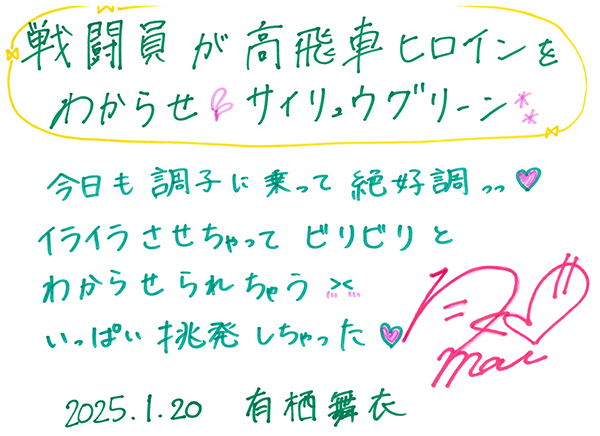 戦闘員が高飛車ヒロインを
わからせ サイリュウグリーン**
今日も調子に乗って絶好調っっ♥
イライラさせちゃってビリビリと
わからせられちゃう ><
いっぱい挑発しちゃった♥
mai
2025.1.20 有栖舞衣